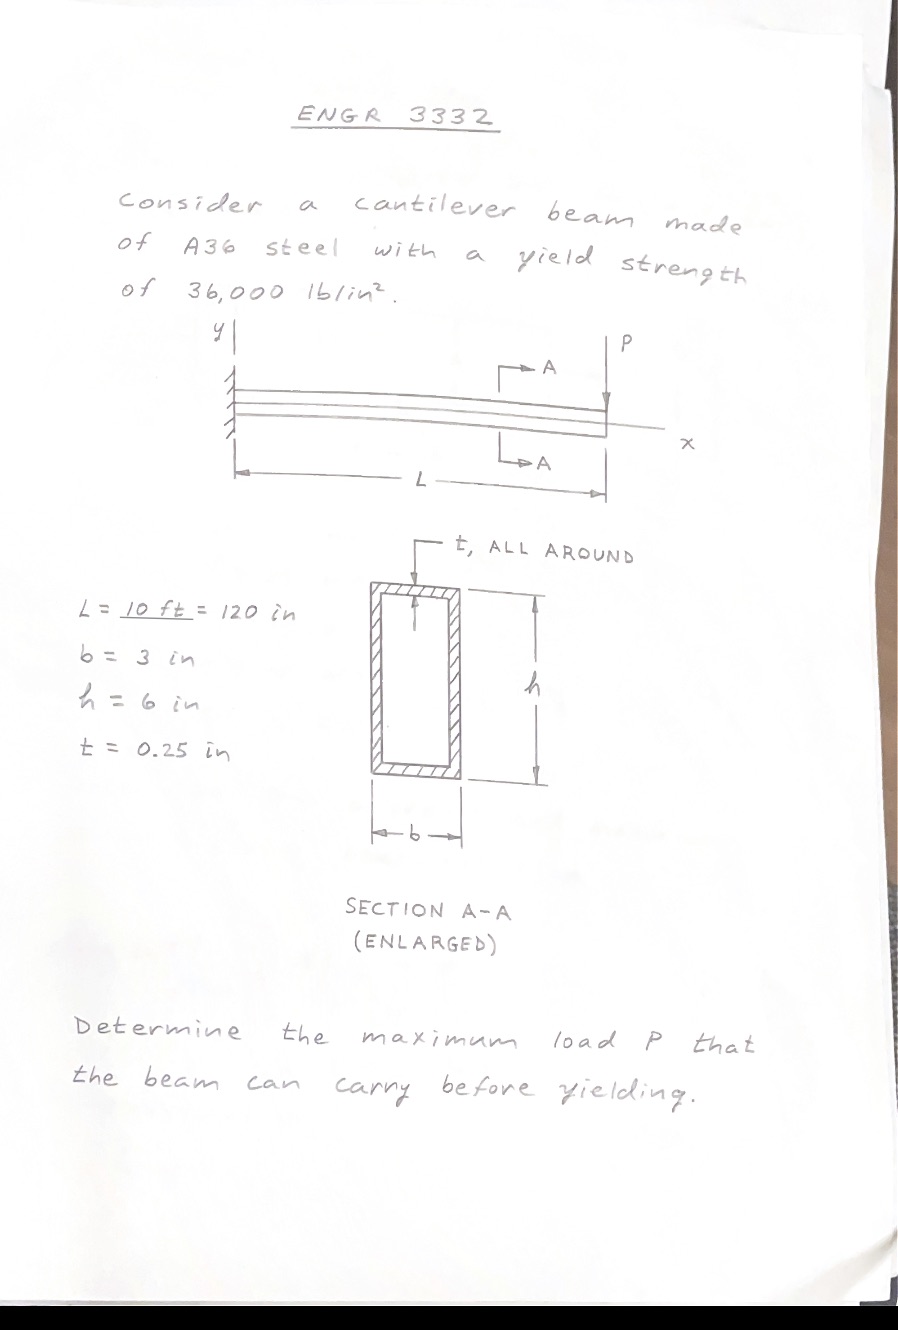 ENGR 3332
Consider a cantilever beam made
of A36 steel with a yield strength
of 36,000 lb/in².
y
P
A
x
A
L
t, ALL AROUND
L = 10 ft = 120 in
b = 3 in
h
h = 6 in
t = 0.25 in
b
SECTION A-A
(ENLARGED)
Determine the maximum load P that
the beam can carry before yielding.